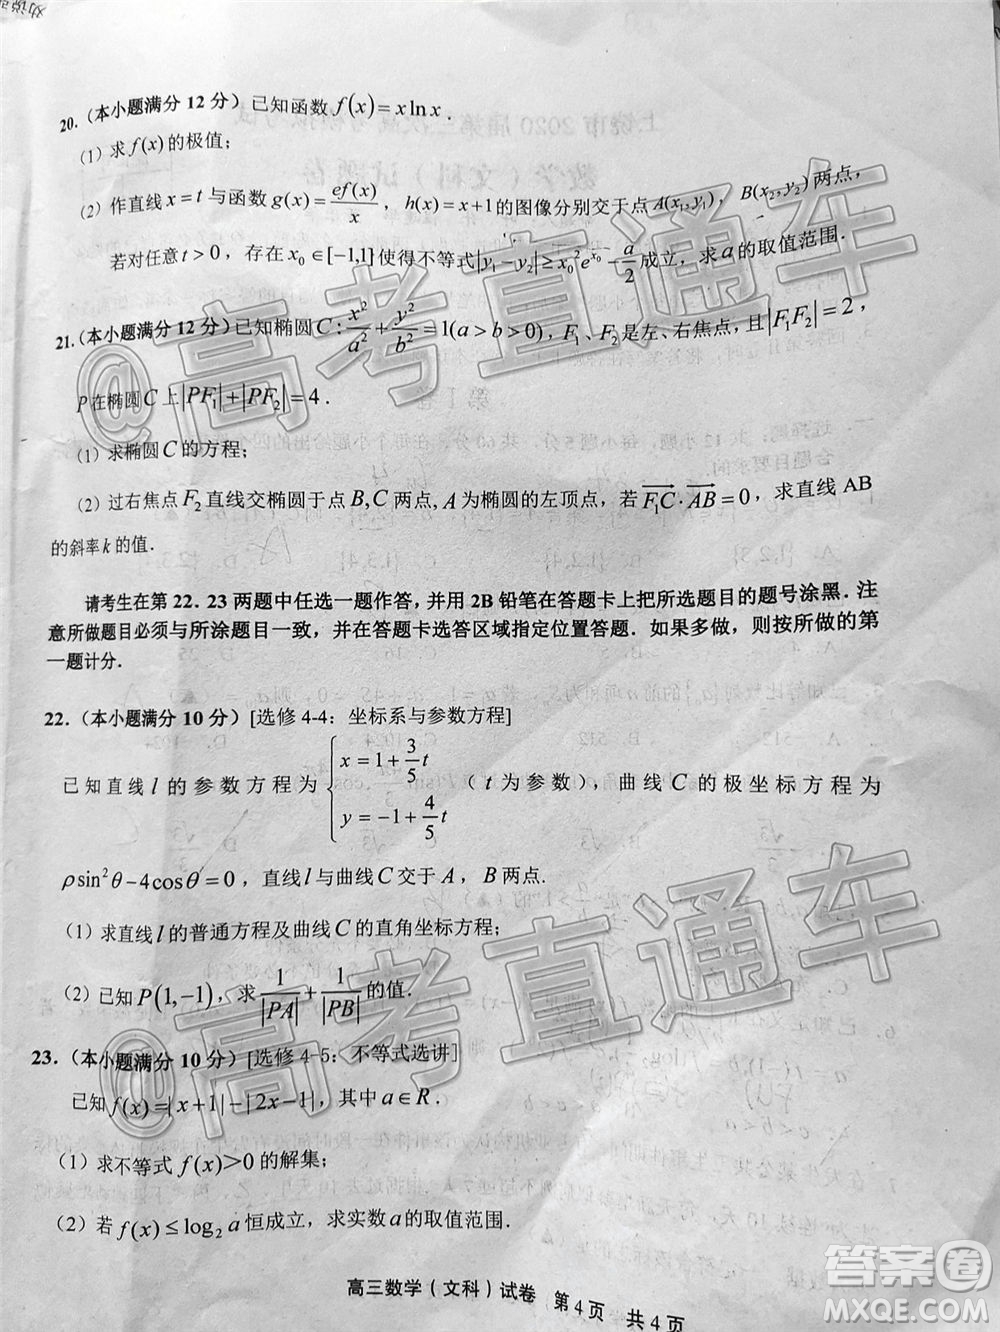 20.（本小题满分 12 分）已知函数 f(x)=x ln x．
(1) 求 f(x) 的极值；
(2) 作直线 x=t 与函数 g(x)=ef(x)/x，h(x)=x+1 的图像分别交于点 A(x₁,y₁)，B(x₂,y₂) 两点，
若对任意 t>0，存在 x₀∈[-1,1] 使得不等式 |y₁-y₂|≥x₀²e^{x₀}-a/2 成立，求 a 的取值范围．
21.（本小题满分 12 分）已知椭圆 C: x²/a²+y²/b²=1(a>b>0)，F₁、F₂ 是左、右焦点，且 |F₁F₂|=2，
P 在椭圆 C 上 |PF₁|+|PF₂|=4．
(1) 求椭圆 C 的方程；
(2) 过右焦点 F₂ 直线交椭圆于点 B,C 两点，A 为椭圆的左顶点，若 F₁C·AB=0，求直线 AB
的斜率 k 的值．
请考生在第 22．23 两题中任选一题作答，并用 2B 铅笔在答题卡上把所选题目的题号涂黑．注
意所做题目必须与所涂题目一致，并在答题卡选答区域指定位置答题．如果多做，则按所做的第
一题计分．
22.（本小题满分 10 分）[选修 4-4：坐标系与参数方程]
已知直线 l 的参数方程为 { x=1+3/5 t
y=-1+4/5 t （t 为参数），曲线 C 的极坐标方程为
ρsin²θ-4cosθ=0，直线 l 与曲线 C 交于 A，B 两点．
（1）求直线 l 的普通方程及曲线 C 的直角坐标方程；
（2）已知 P(1,-1)，求 1/|PA|+1/|PB| 的值．
23.（本小题满分 10 分）[选修 4-5：不等式选讲]
已知 f(x)=|x+1|-|2x-1|，其中 a∈R．
（1）求不等式 f(x)>0 的解集；
（2）若 f(x)≤log₂a 恒成立，求实数 a 的取值范围．
高三数学（文科）试卷 第 4 页 共 4 页
@高考直通车
@高考直通车
答案圈
MXQE.COM